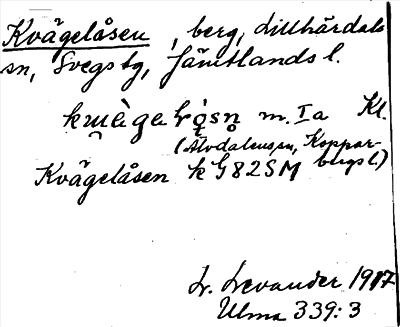 Kvägelåsen, berg, Lillhärdals
sn, Svegs tg, Jämtlands l.
m. Ia Kl.
(Älvdalens sn, Koppar-
bergs l)
Kvägelåsen k G82SM
L. Levander 1917
Ulma 339:3